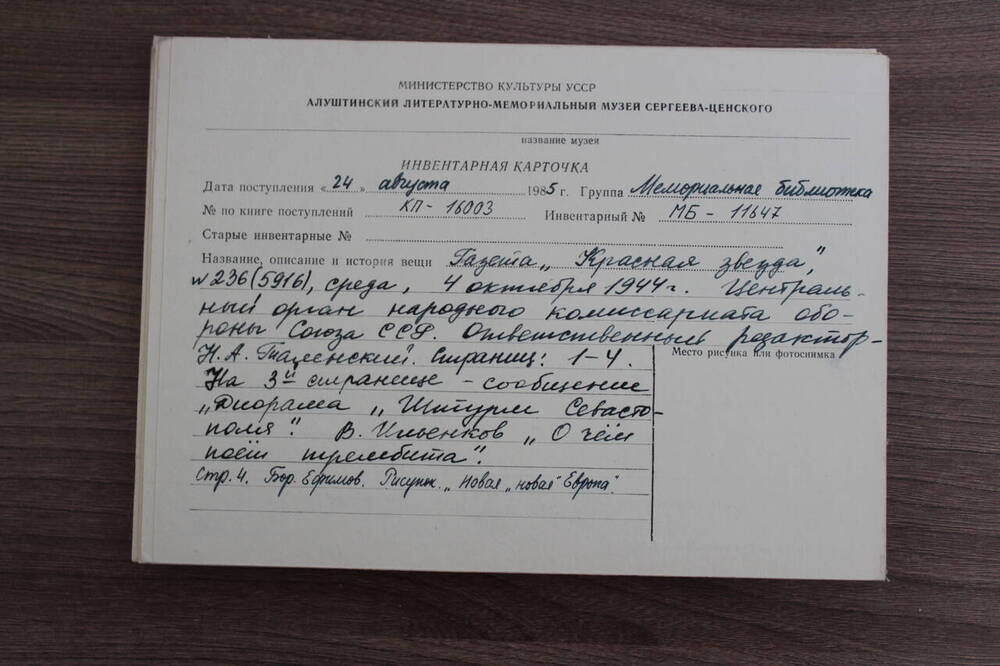 МИНИСТЕРСТВО КУЛЬТУРЫ УССР
АЛУШТИНСКИЙ ЛИТЕРАТУРНО-МЕМОРИАЛЬНЫЙ МУЗЕЙ СЕРГЕЕВА-ЦЕНСКОГО
название музея
ИНВЕНТАРНАЯ КАРТОЧКА
Дата поступления «24» августа 1985 г. Группа Мемориальная библиотека
№ по книге поступлений КП-16003 Инвентарный № МБ-11647
Старые инвентарные №
Название, описание и история вещи Газета „Красная звезда",
№236(5916), среда, 4 октября 1944г. Централь-
ный орган народного комиссариата обо-
роны Союза ССР. Ответственный редактор-
Н.А. Таленский. Страниц: 1-4.
Место рисунка или фотоснимка
На 3й странице - сообщение
„Диорама „Штурм Севасто-
поля". В. Ильенков „О чём
поёт трембита".
Стр. 4. Бор. Ефимов. Рисунок. „Новая „новая" Европа".